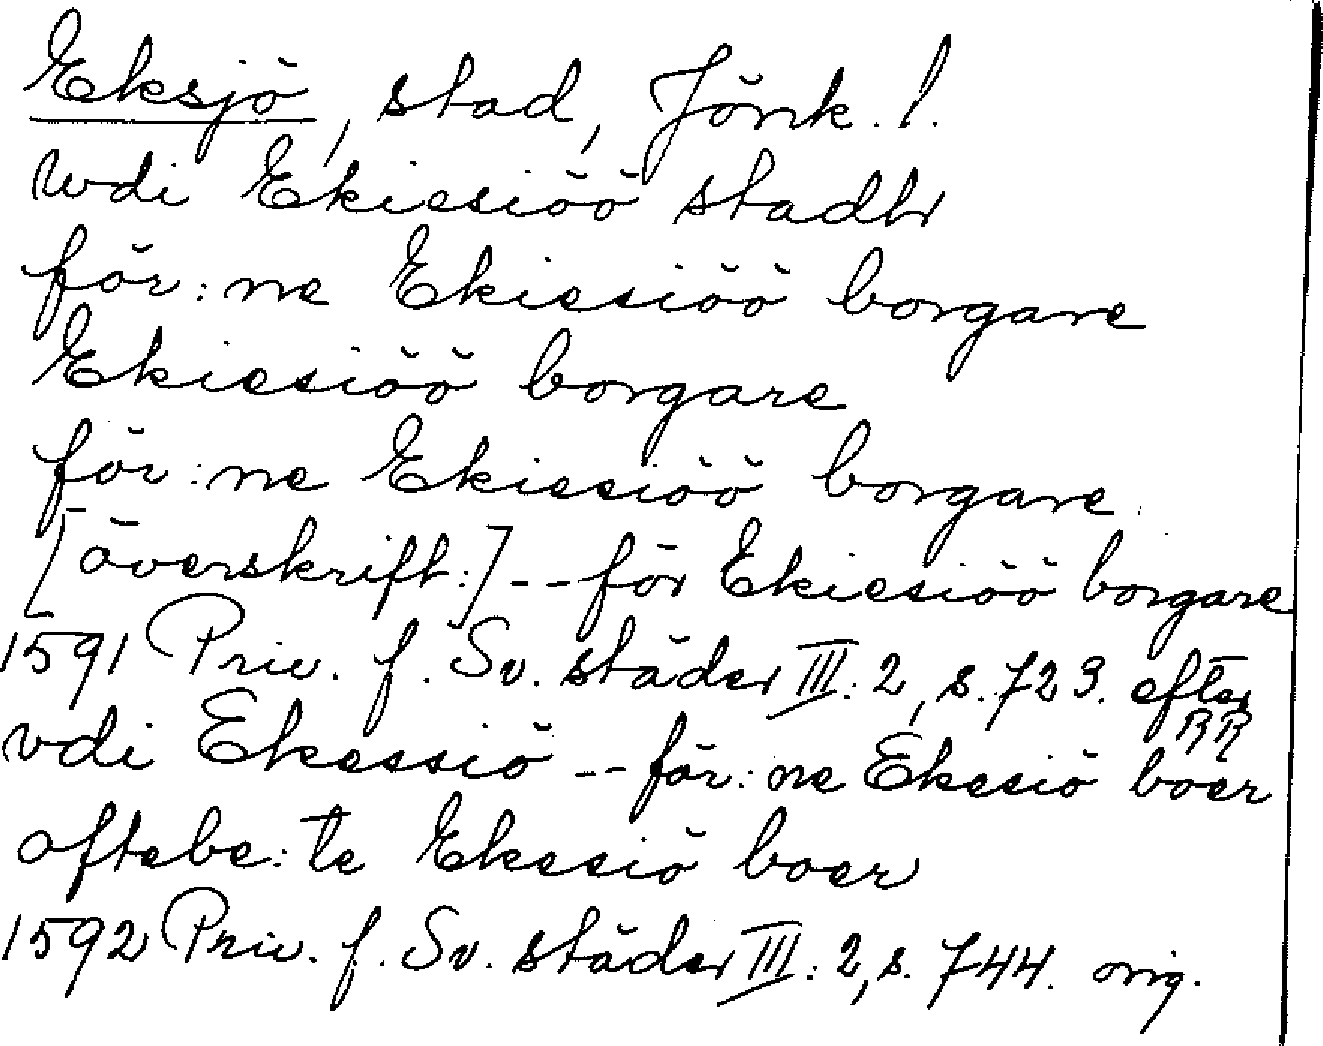 Eksjö, stad, Jönk. l.
wdi Ekiesiöö stadh
för:ne Ekiesiöö borgare
Ekiesiöö borgare
för:ne Ekiesiöö borgare
[överskrift:] -- för Ekiesiöö borgare
1591 Priv. f. Sv. städer III:2, s. 723. efter RR
vdi Ekessiö -- för:ne Ekesiö boer
oftebe:te Ekesiö boer
1592 Priv. f. Sv. städer III:2, s. 744. orig.